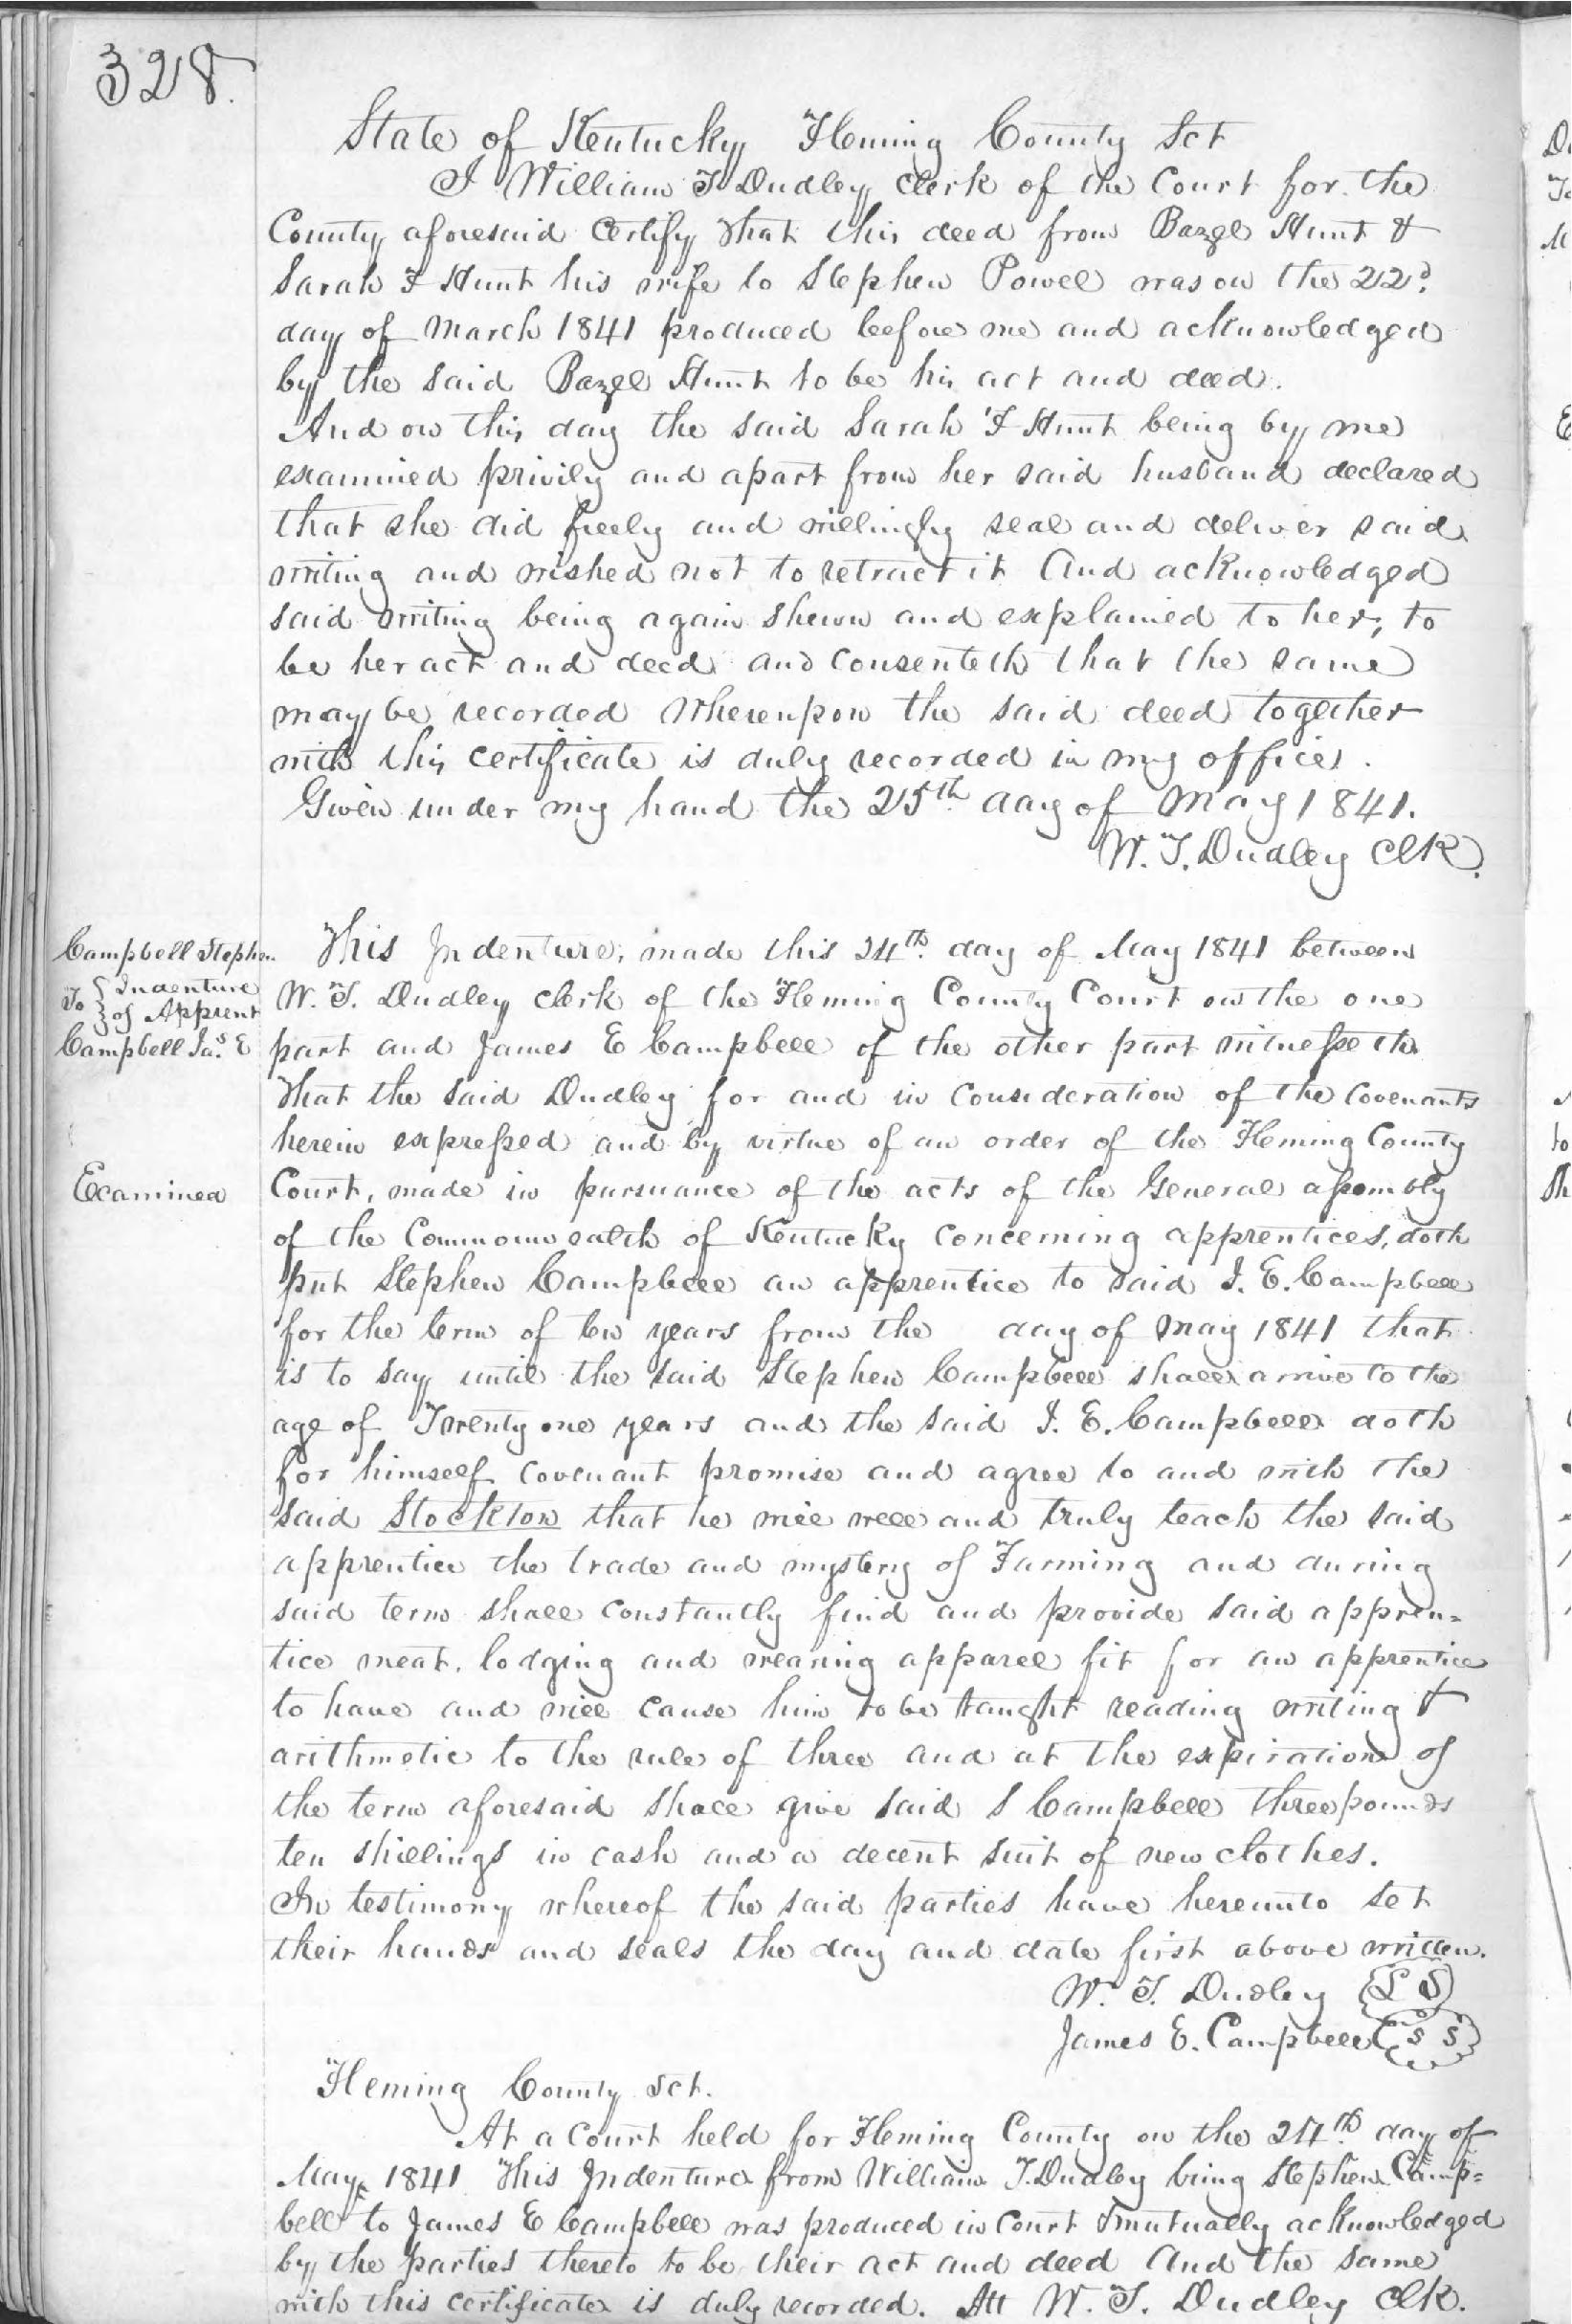 328.
State of Kentucky Fleming County Sct
I William T Dudley clerk of the Court for the
County aforesaid Certify that this deed from Bazel Hunt &
Sarah F Hunt his wife to Stephen Powel was on the 22d.
day of March 1841 produced before me and acknowledged
by the said Bazel Hunt to be his act and deed.
And on this day the said Sarah F Hunt being by me
examined privily and apart from her said husband declared
that she did freely and willingly seal and deliver said
writing and wished not to retract it And acknowledged
said writing being again shewn and explained to her, to
be her act and deed and Consenteth that the same
may be recorded Whereupon the said deed together
with this certificate is duly recorded in my office.
Given under my hand the 25th day of May 1841.
W. T. Dudley Clk.
Campbell Stephen
To { Indenture
} of Apprent
Campbell Jas. E
Examined
This Indenture, made this 24th. day of May 1841 between
W. T. Dudley clerk of the Fleming County Court on the one
part and James E Campbell of the other part witnesseth
that the said Dudley for and in Consideration of the Covenants
herein expressed and by virtue of an order of the Fleming County
Court, made in pursuance of the acts of the General assembly
of the Commonwealth of Kentucky Concerning apprentices, doth
put Stephen Campbell an apprentice to said J. E. Campbell
for the term of ten years from the day of May 1841 that
is to say until the said Stephen Campbell shall arrive to the
age of Twenty one years and the said J. E. Campbell doth
for himself Covenant promise and agree to and with the
said Stockton that he will well and truly teach the said
apprentice the trade and mystery of Farming and during
said term shall constantly find and provide said appren=
tice meat, lodging and wearing apparel fit for an apprentice
to have and will cause him to be taught reading writing &
arithmetic to the rule of three and at the expiration of
the term aforesaid shall give said S Campbell three pounds
ten shillings in cash and a decent suit of new clothes.
In testimony whereof the said parties have hereunto set
their hands and seals the day and date first above written.
W. T. Dudley {L S}
James E. Campbell {S S}
Fleming County Sct.
At a Court held for Fleming County on the 24th. day of
May 1841 This Indenture from William T. Dudley being Stephen Camp=
bell to James E Campbell was produced in Court & mutually acknowledged
by the parties thereto to be their act and deed And the same
with this certificate is duly recorded. Att W. T. Dudley Clk.